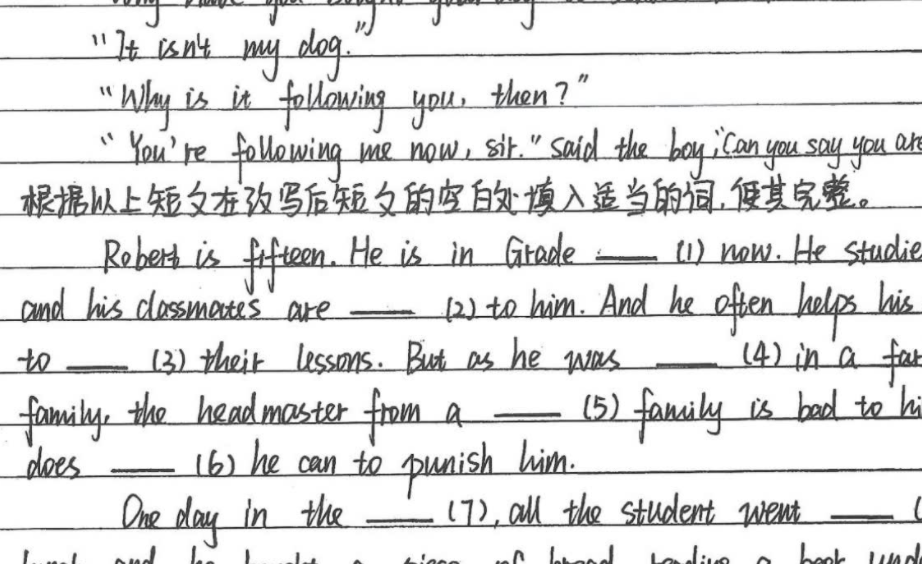 "It isn't my dog."
"Why is it following you, then?"
"You're following me now, sir." said the boy, "Can you say you are
根据以上短文在改写后短文的空白处填入适当的词,使其完整。
Robert is fifteen. He is in Grade ___ (1) now. He studie
and his classmates are ___ (2) to him. And he often helps his
to ___ (3) their lessons. But as he was ___ (4) in a far
family, the headmaster from a ___ (5) family is bad to hi
does ___ (6) he can to punish him.
One day in the ___ (7), all the student went ___ (
and he a piece of bread book und